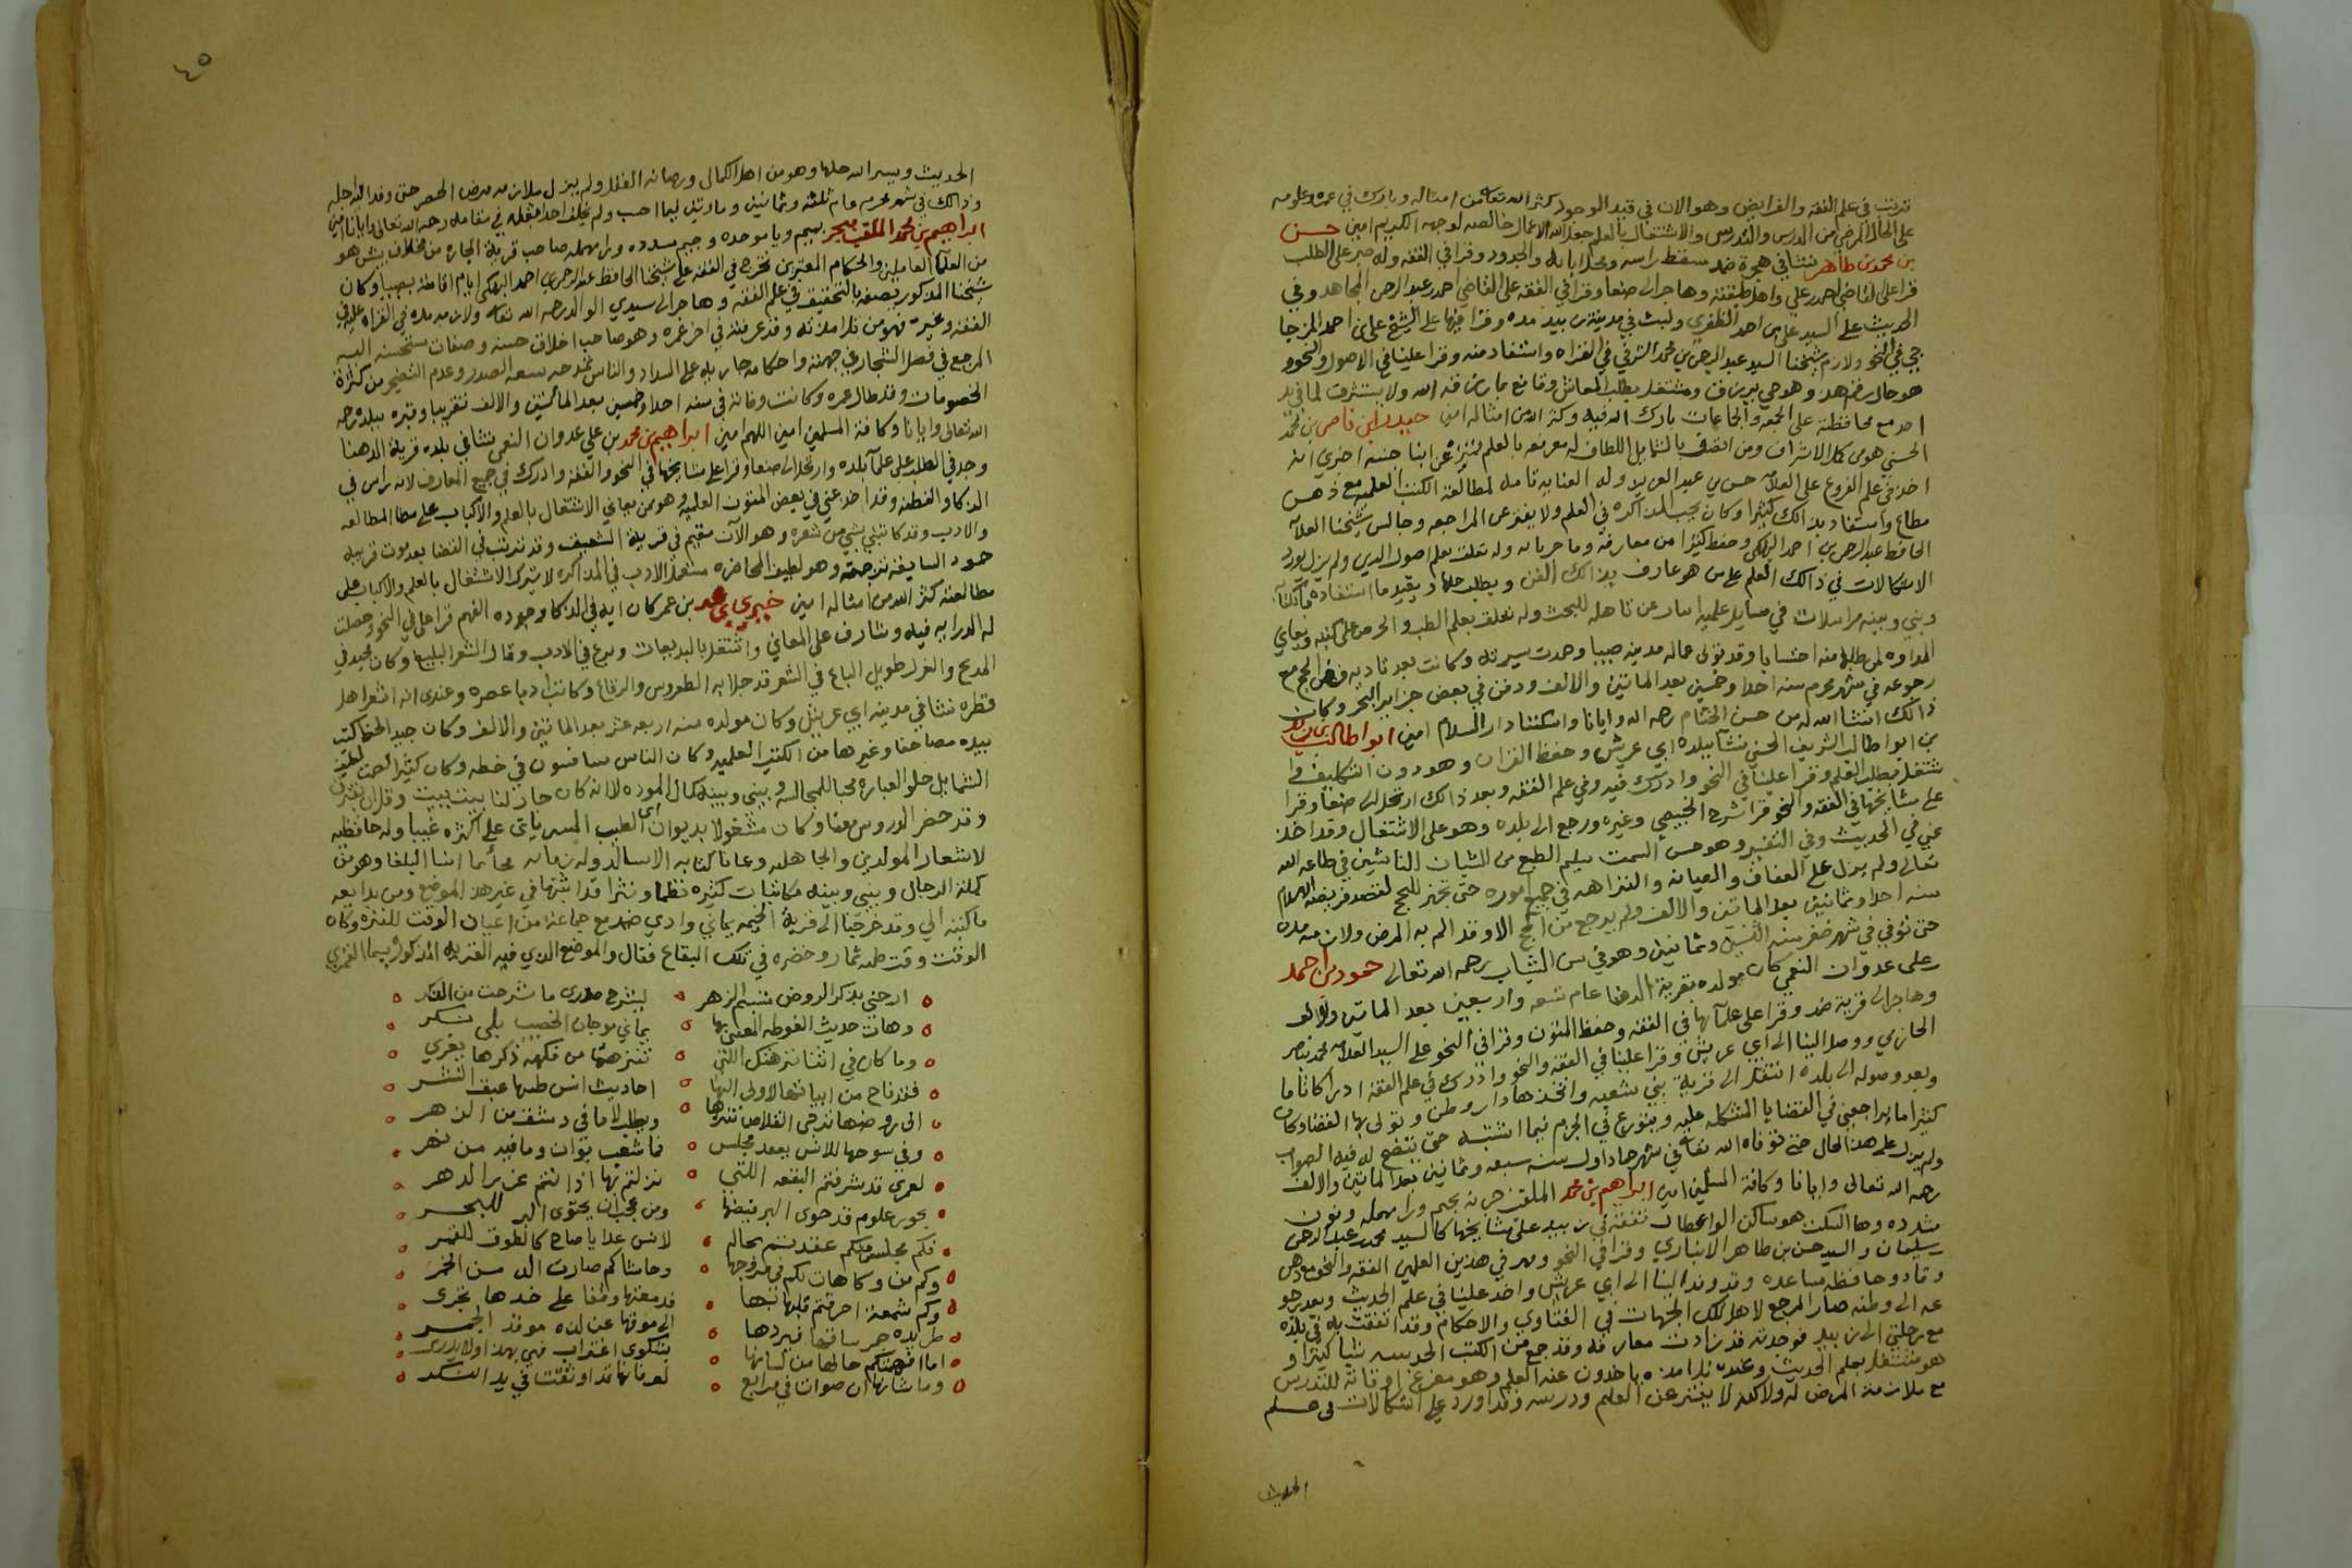 تدرت في علم الفقه والفرايض وهو الان في قيد الوجود كثر الله تعالى من امثاله وبارك في عمره وعلومه
على الحال المرضي من الدرس والتدريس والاشتغال بالعلم جعل الله الاعمال خالصه لوجهه الكريم امين حسن
بن محمد بن طاهر نشا في هجرة ضمد سقط راسه ومحل ابايه والجدود وقرا في الفقه وله صبر على الطلب
قرا على القاضي احمد بن علي واهل طبقته وهاجر الى صنعا وقرا في الفقه على القاضي احمد بن عبد الرحمن المجاهد وفي
الحديث على السيد علي بن احمد الظفري ولبث في مدينة زبيد مده وقرا فيها على الشيخ علي بن احمد المزجا
جي في النحو ولازم شيخنا السيد عبد الرحمن بن محمد الشرفي في القراه واستفاد منه وقرا علينا في الاصول والنحو و
هو حال زهد وهو حي يرزق ومشتغل بطلب المعاش وقانع بما رزقه الله ولا يستشرف لما في يد
احد مع محافظته على الجمعه والجماعات بارك الله فيه وكثر الله من امثاله امين حيدر بن ناصر بن محمد
الحسني هو من كملا الاشراف ومن اتصف بالشمايل اللطاف له معرفه بالعلم تميز عن ابنا جنسه اخبرني انه
اخذ في علم الفروع على العلامه حسن بن عبد العزيز وله العنايه تامه لمطالعة الكتب العلميه مع ذهن
مطاع واستفاد بذالك كثيرا وكان يحب المذاكره في العلم ولا يفتر عن المراجعه وجالس شيخنا العلامه
الحافظ عبد الرحمن بن احمد البهكلي وحفظ كثيرا من معارفه وماجرياته وله تعلق بعلم اصول الدين ولم يزل يورد
الاشكالات في ذالك العلم على من هو عارف بذالك الفن ويطلب حلها ويقيد ما استفاده
وبيني وبينه مراسلات في مسايل علميه اسفار عن تاهله للبحث وله تعلق بعلم الطب والحرص على كتبه ويعاني
المداوه لمن طلبها منه احتسابا وقد تولى عماله مدينه صبيا وحمدت سيرته وكانت بعد تاديه فرض الحج مع
رجوعه في شهر محرم سنه احدا وخمسين بعد الماتين والالف ودفن في بعض جزاير البحر وكان
ذالك انشا الله له من حسن الختام رحمه الله وايانا واسكننا دار السلام امين ابو طالب
بن ابو طالب الشريف الحسني نشا ببلده ابي عريش وحفظ القران وهو دون التكليف
شتغل بطلب العلم وقرا علينا في النحو وادرك فيه وفي علم الفقه وبعد ذالك ارتحل الى صنعا وقرا
على مشايخها في الفقه والنحو قرا شرح الخبيصي وغيره ورجع الى بلده وهو على الاشتغال وقد اخذ
عني في الحديث وفي التفسير وهو حسن السمت سليم الطبع من الشبان الناشين في طاعه الله
تعالى ولم يزل على العفاف والصيانه والنزاهه في جميع اموره حتى تجهز للحج لقصد فريضه الاسلام
سنه احدا وثمانين بعد الماتين والالف ولم يرجع من الحج الا وقد الم به المرض ولازمه مده
حتى توفي في شهر صفر سنه اثنين وثمانين وهو في سن الشباب رحمه الله تعالى حمود بن احمد
بن علي عدوان النعمي كان مولده بقرية الدهنا عام تسعه واربعين بعد الماتين والالف
وهاجر الى قرية ضمد وقرا على علمآيها في الفقه وحفظ المتون وقرا في النحو على السيد العلامه محمد بن ناصر
الحازمي ووصل الينا الى ابي عريش وقرا علينا في الفقه والنحو وادرك في علم الفقه ادراكا تاما
وبعد وصوله الى بلده انتقل الى قرية بني شعبه واتخذها دار وطن وتولى بها القضا وكان
كثيرا ما يراجعني في القضايا المشكله عليه ويتورع في الجزم فيما اشتبه حتى يتضح له فيه الصواب
ولم يزل على هذا الحال حتى توفاه الله تعالى في شهر جمادا اول سنه سبعه وثمانين بعد الماتين والالف
رحمه الله تعالى وايانا وكافة المسلمين امين ابراهيم بن محمد الملقب جرنه بجيم ورا مهمله ونون
مشدده وها السكت هو ساكن الواعظات تفقه في زبيد على مشايخها كالسيد محمد بن عبد الرحمن
بن سليمان والسيد حسن بن طاهر الانباري وقرا في النحو ومهر في هذين العلمين الفقه والنحو مع ذهن
وقاد وحافظه مساعده وقد وفد الينا الى ابي عريش واخذ علينا في علم الحديث وبعد رجو
عه الى وطنه صار المرجع لاهل تلك الجهات في الفتاوي والاحكام وقد اتفقت به في بلده
مع رحلتي الى زبيد فوجدته قد زادت معارفه وقد جمع من الكتب الحديثيه شيا كثيرا و
هو مشتغل بعلم الحديث وعنده تلامذه ياخذون عنه العلم وهو مفرغ اوقاته للتدريس
مع ملازمة المرض له ولاكنه لا يفتر عن العلم ودرسه وقد اورد علي اشكالات في علم
الحديث
٤٥
الحديث ويسر الله حلها وهو من اهل الكمال ورصانه العقل ولم يزل ملازمه مرض الحصر حتى وفد اليه اجله
وذالك في شهر محرم عام ثلثه وثمانين وماتين فيما احسب ولم يخلف احدا مثله في مقامه رحمه الله تعالى وايانا امين
ابراهيم بن محمد الملقب مبجر بميم وبا موحده وجيم مشدده ورا مهمله صاحب قرية الجاره من مخلاف بيش هو
من العلما العاملين والحكام المعتبرين تخرج في الفقه على شيخنا الحافظ عبد الرحمن بن احمد البهكلي ايام اقامته بصبيا وكان
شيخنا المذكور يصفه بالتحقيق في علم الفقه وهاجر الى سيدي الوالد رحمه الله تعالى ولازمه مده في القراه عليه في
الفقه وغيره فهو من تلامذته وقد عرفته في اخر عمره وهو صاحب اخلاق حسنه وصفات مستحسنه اليه
المرجع في فصل الشجار في جهته واحكامه جاريه على السداد والناس تمدحه بسعه الصدر وعدم التضجر من كثرة
الخصومات وقد طال عمره وكانت وفاته في سنه احدا وخمسين بعد المائتين والالف تقريبا وقبره ببلده رحمه
الله تعالى وايانا وكافة المسلمين امين اللهم امين ابراهيم بن محمد بن علي عدوان النعمي نشا في بلده قرية الدهنا
وجد في الطلب على علمآ بلده وارتحل الى صنعا وقرا على مشايخها في النحو والفقه وادرك في جميع المعارف لانه راس في
الذكا والفطنه وقد اخذ عني في بعض المتون العلميه وهو ممن يعاني الاشتغال بالعلم والاكباب على مطا المطالعه
والادب وقد كاتبني بشي من شعره وهو الآن مقيم في قرية الشعيف وقد تدرب في القضا بعد موت قريبه
حمود السابقه ترجمته وهو لطيف المحاضره مستعمل الادب في المذاكره لا يترك الاشتغال بالعلم والاكباب على
مطالعته كثر الله من امثاله امين خيري بن محمد بن عمر كان ايه في الذكا وجوده الفهم قرا علي في النحو وحصلت
له الدرايه فيه وشارف على المعاني واشتغل بالبديعات وبرع في الادب وقال الشعر البليغ وكان مجيد في
المديح والغزل طويل الباع في الشعر قد حلا به الطروس والرقاع وكانت اديبا عصره وعندي انه اشعر اهل
قطره نشا في مدينه ابي عريش وكان مولده سنه اربعه عشر بعد الماتين والالف وكان جيد الخط كتب
بيده مصاحفا وغيرها من الكتب العلميه وكان الناس ينافسون في خطه وكان كثير الصمت لطيف
الشمايل حلو العباره محبا للمجالسه وبيني وبينه كمال الموده لانه كان جار لنا بيت ببيت وقل ان نفترق
وقد حضر الدروس معنا وكان مشغولا بديوان ابي الطيب المتنبي ياتي على اكثره غيبا وله حافظيه
لاشعار المولدين والجاهليه وعانا كتابه الانشا لدوله زمانه محاكما انشا البلغا وهو من
كملة الرجال وبيني وبينه مكاتبات كثيره نظما ونثرا قد اثبتها في غير هذا الموضع ومن بدايعه
ما كتبه الي وقد خرجنا الى قرية الخيمه يماني وادي ضمد مع جماعة من اعيان الوقت للنزه وكان
الوقت وقت طعه ثمار وخضره في تلك البقاع فقال والموضع الذي فيه القريه المذكوره يسما الغمري
ارحني بذكر الروض تبسم الزهر ليشرح صدري ما شرحت من الفكر
وهات حديث الغوطه المغني بها يماني موجان الخصيب بلى شكر
وما كان في اثنا نزهتك اللتي تنزهتها من فكهه ذكرها يغري
فقد فاح من ابياتها الاولى اليها احاديث انس طيها عبق النشر
الى روضها تدحى القلاص تنزها ويطلب لاما في دمشق من الزهر
وفي سوحها للانس يعقد مجلس فما شعب بوان وما فيه من نهر
لعمري قد شرفتم البقعه اللتي نزلتم بها اذ انتم غرر الدهر
بحور علوم قد حوى البر فيضها ومن عجب ان يحتوى البر للبحر
فكم مجلس منكم عقدتم بحاله لانس غدا يا صاح كالطوق للنحر
وكم من وكاهات لكم في مروجها وحاشاكم صارت الد من الخمر
وكم شمعة احرقتم قلبها بها فدمعتها وقفا على خدها تجرى
طريده حمر ساقها فيردها الى موقها عن لذه موقد الجمر
اما افهمتكم حالها من لسانها بشكوى اغتراب فهي بهذا ولا يدري
وما شانها ان صوات في مرابع لعرفانها قد اوثقت في يد الشكر